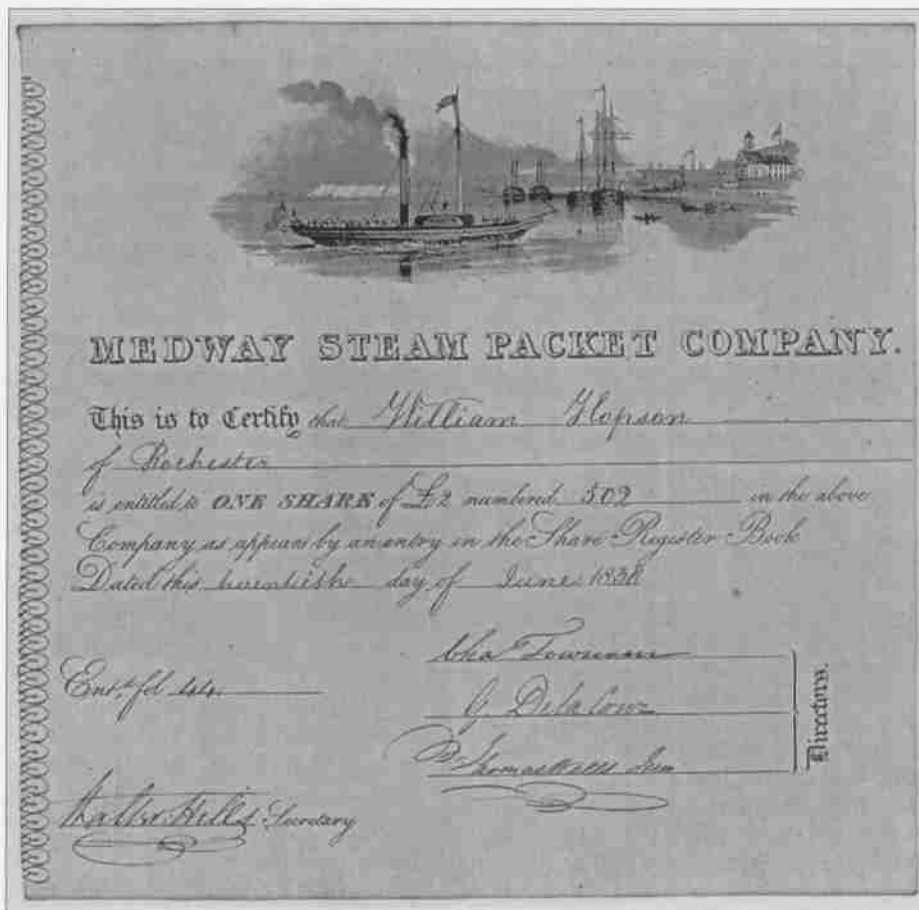 MEDWAY STEAM PACKET COMPANY.
This is to Certify that William Hopson
of Rochester
is entitled to ONE SHARE of £2 numbered 509 in the above
Company as appears by an entry in the Share Register Book
Dated this twentieth day of June 1838
Entd. fol
Chas Townson
G Delalowz
Thomas Mills Jun
Directors.
Walter Hills Secretary